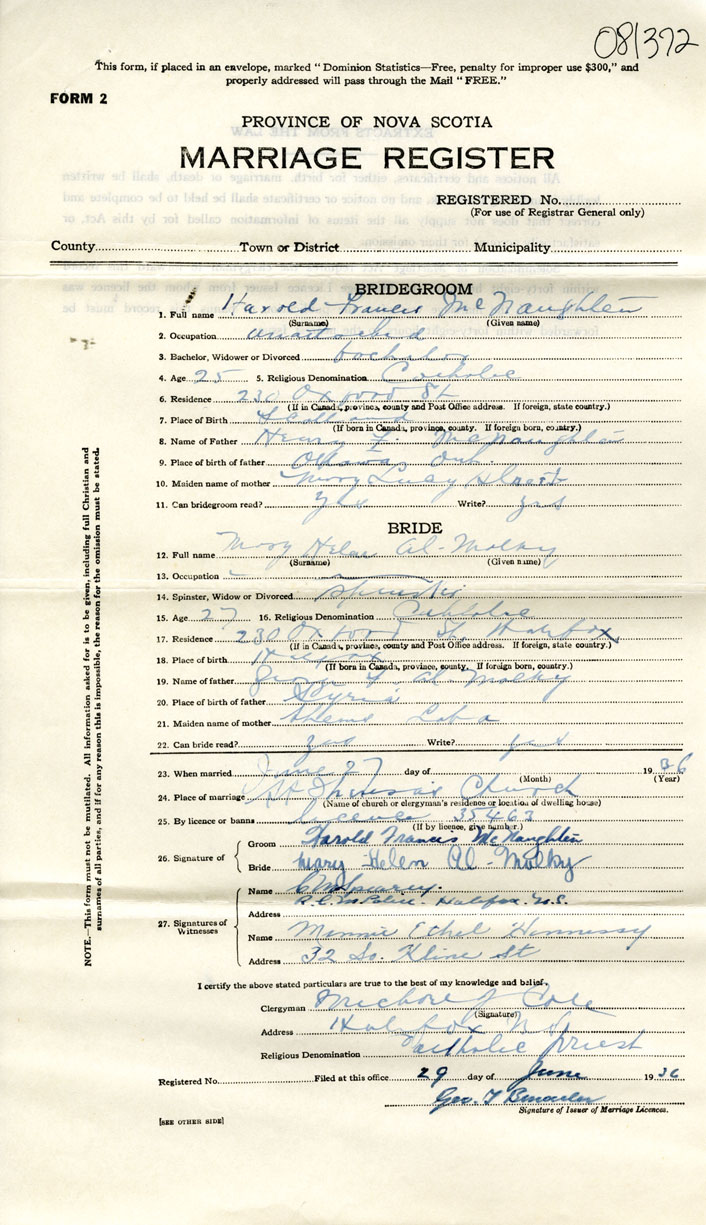 081372
This form, if placed in an envelope, marked "Dominion Statistics—Free, penalty for improper use $300," and
properly addressed will pass through the Mail "FREE."
FORM 2
PROVINCE OF NOVA SCOTIA
MARRIAGE REGISTER
REGISTERED No.
(For use of Registrar General only)
County Town or District Municipality
BRIDEGROOM
1. Full name Harold Francis McNaughten
(Surname) (Given name)
2. Occupation
3. Bachelor, Widower or Divorced bachelor
4. Age 25 5. Religious Denomination Catholic
6. Residence 230 Oxford St
(If in Canada, province, county and Post Office address. If foreign, state country.)
7. Place of Birth Scotland
(If born in Canada, province, county. If foreign born, country.)
8. Name of Father Henry F. McNaughten
9. Place of birth of father Ottawa Ont.
10. Maiden name of mother Mary Lucy
11. Can bridegroom read? yes Write? yes
BRIDE
12. Full name Mary Helen Al-Molky
(Surname) (Given name)
13. Occupation
14. Spinster, Widow or Divorced spinster
15. Age 27 16. Religious Denomination Catholic
17. Residence 230 Oxford St, Halifax
(If in Canada, province, county and Post Office address. If foreign, state country.)
18. Place of birth Halifax
(If born in Canada, province, county. If foreign born, country.)
19. Name of father George Al-Molky
20. Place of birth of father Syria
21. Maiden name of mother Laba
22. Can bride read? yes Write? yes
23. When married June 27 day of 1936
(Month) (Year)
24. Place of marriage St Theresa's Church
(Name of church or clergyman's residence or location of dwelling house)
25. By licence or banns licence 35463
(If by licence, give number.)
26. Signature of Groom Harold Francis McNaughten
Bride Mary Helen Al-Molky
27. Signatures of Witnesses
Name
R.C.M. Police. Halifax. N.S.
Address
Name Minnie Ethel Hennessy
Address 32 So. Kline St
I certify the above stated particulars are true to the best of my knowledge and belief.
Clergyman Michael J Cole
(Signature)
Address Halifax N.S.
Religious Denomination Catholic priest
Registered No. Filed at this office 29 day of June 1936
Geo. T
Signature of Issuer of Marriage Licences.
[SEE OTHER SIDE]
NOTE.—This form must not be mutilated. All information asked for is to be given, including full Christian and
surnames of all parties, and if for any reason this is impossible, the reason for the omission must be stated.